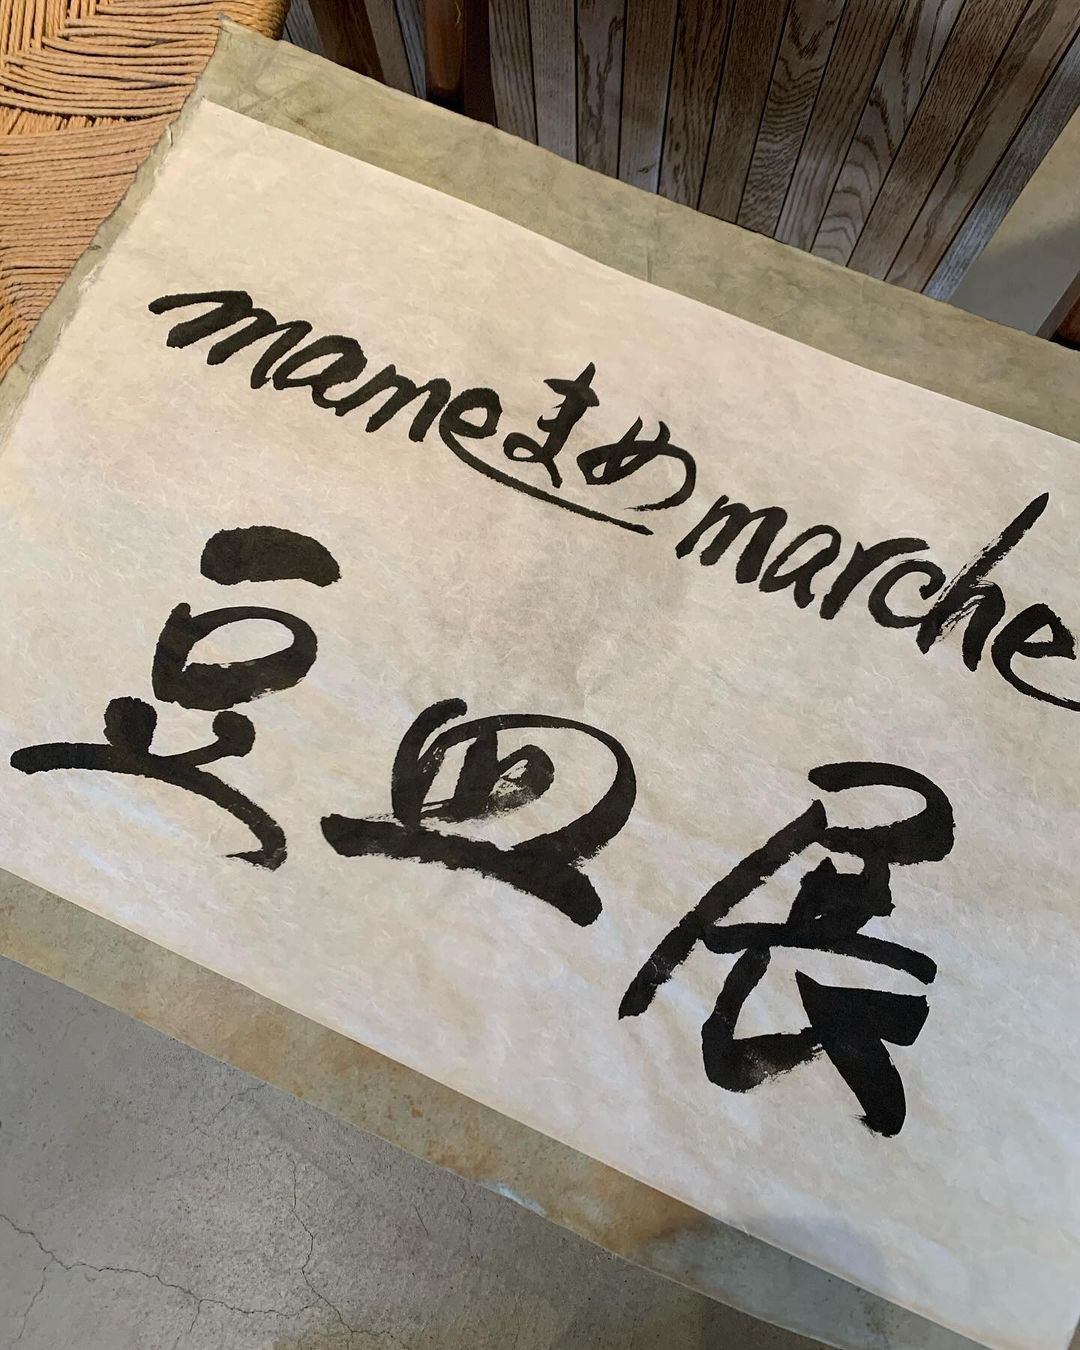 mameまめmarche
豆皿展